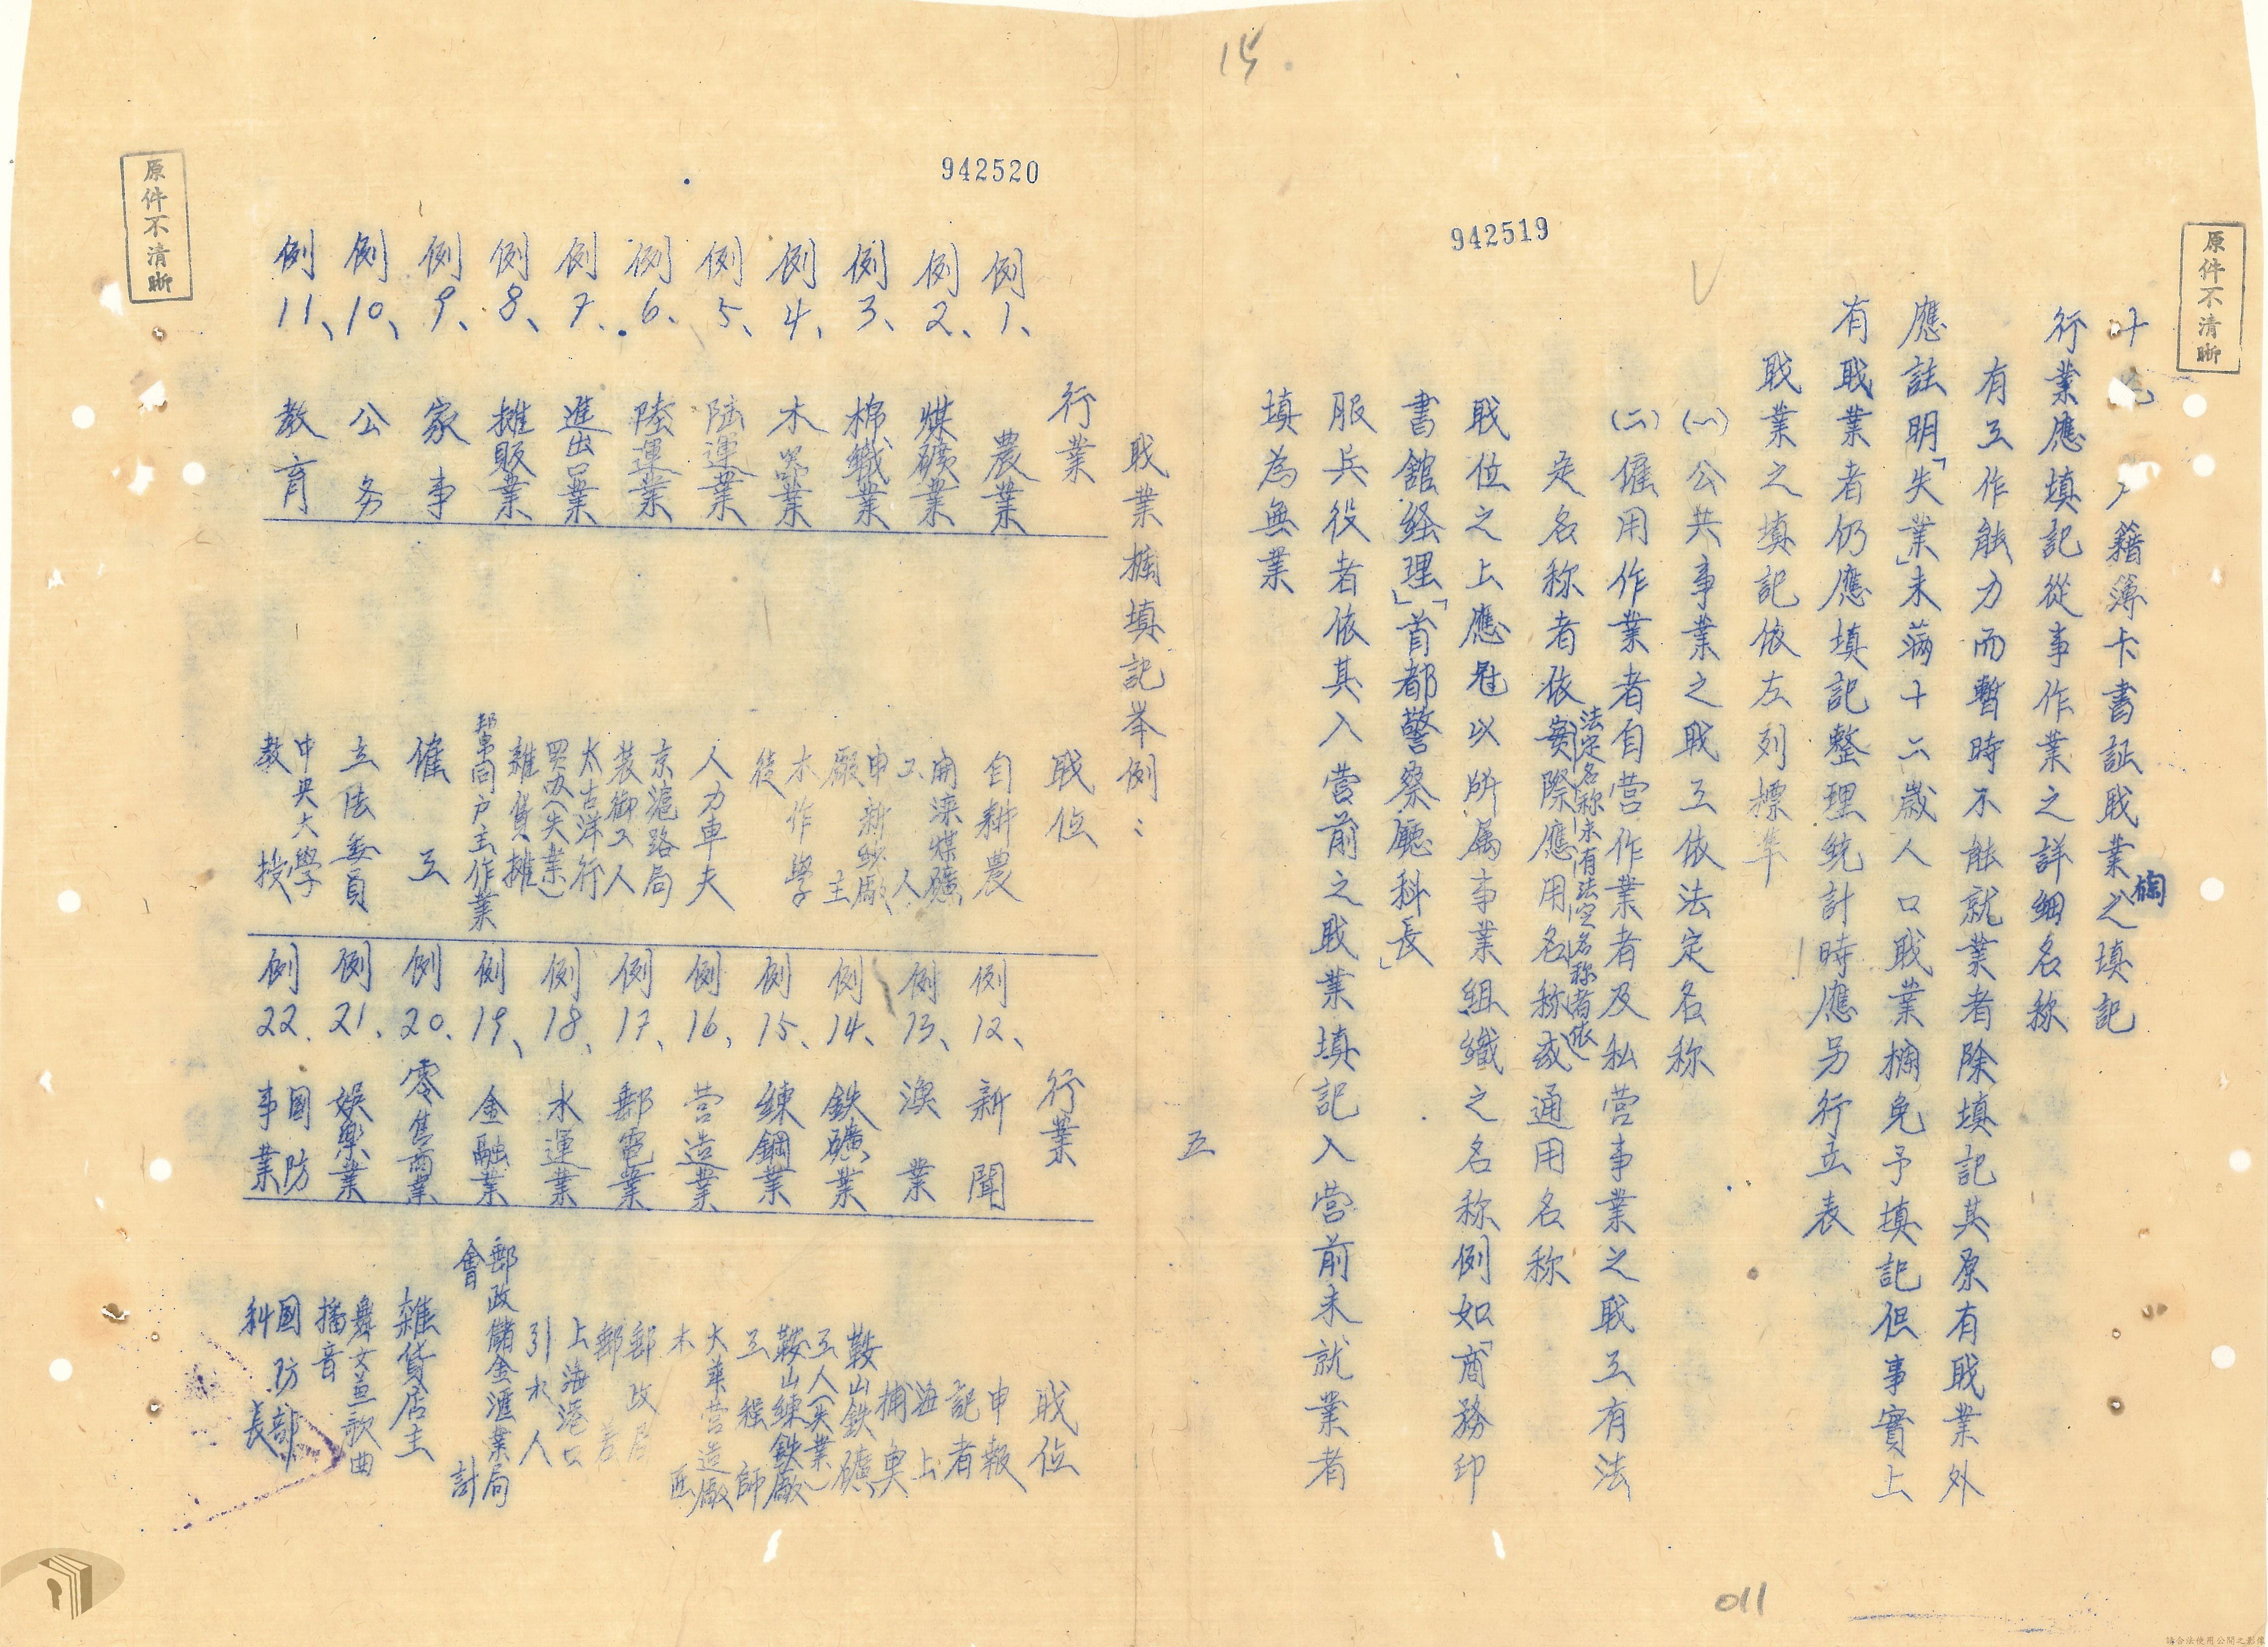 原件不清晰
942519
十 戶籍簿卡書証职業欄之填記
行業應填記從事作業之詳細名称
有工作能力而暫時不能就業者除填記其原有职業外
應註明「失業」未滿十二歲人口职業欄免予填記但事實上
有职業者仍應填記整理統計時應另行立表
职業之填記依左列標準
(一)公共事業之职工依法定名称
(二)僱用作業者自营作業者及私营事業之职工有法
定名称者依法定名称未有法定名称者依實際應用名称或通用名称
职位之上應冠以所属事業組織之名称例如「商務印
書館経理」「首都警察廳科長」
服兵役者依其入营前之职業填記入营前未就業者
填為無業
五
15
942520
原件不清晰
职業欄填記举例：
行業 职位
例1、農業 自耕農
例2、煤礦業 開滦煤礦工人
例3、棉織業 申新紗廠廠主
例4、木器業 木作學徒
例5、陆運業 人力車夫
例6、陸運業 京滬路局装卸工人
例7、進出口業 太古洋行買办(失業)
例8、摊販業 雜貨摊
例9、家事 幫同户主作業 僱工
例10、公务 立法委員
例11、教育 中央大學教授
行業 职位
例12、新聞 申報記者
例13、漁業 海上捕魚
例14、鉄礦業 鞍山鉄礦工人(失業)
例15、練鋼業 鞍山練鉄廠工程師
例16、营造業 大華营造廠木匠
例17、郵電業 郵政局郵差
例18、水運業 上海港口引水人
例19、金融業 郵政儲金滙業局會計
例20、零售商業 雜貨店主
例21、娛樂業 舞女兼歌曲播音
例22、國防事業 國防部科長
011
請合法使用公開之影像